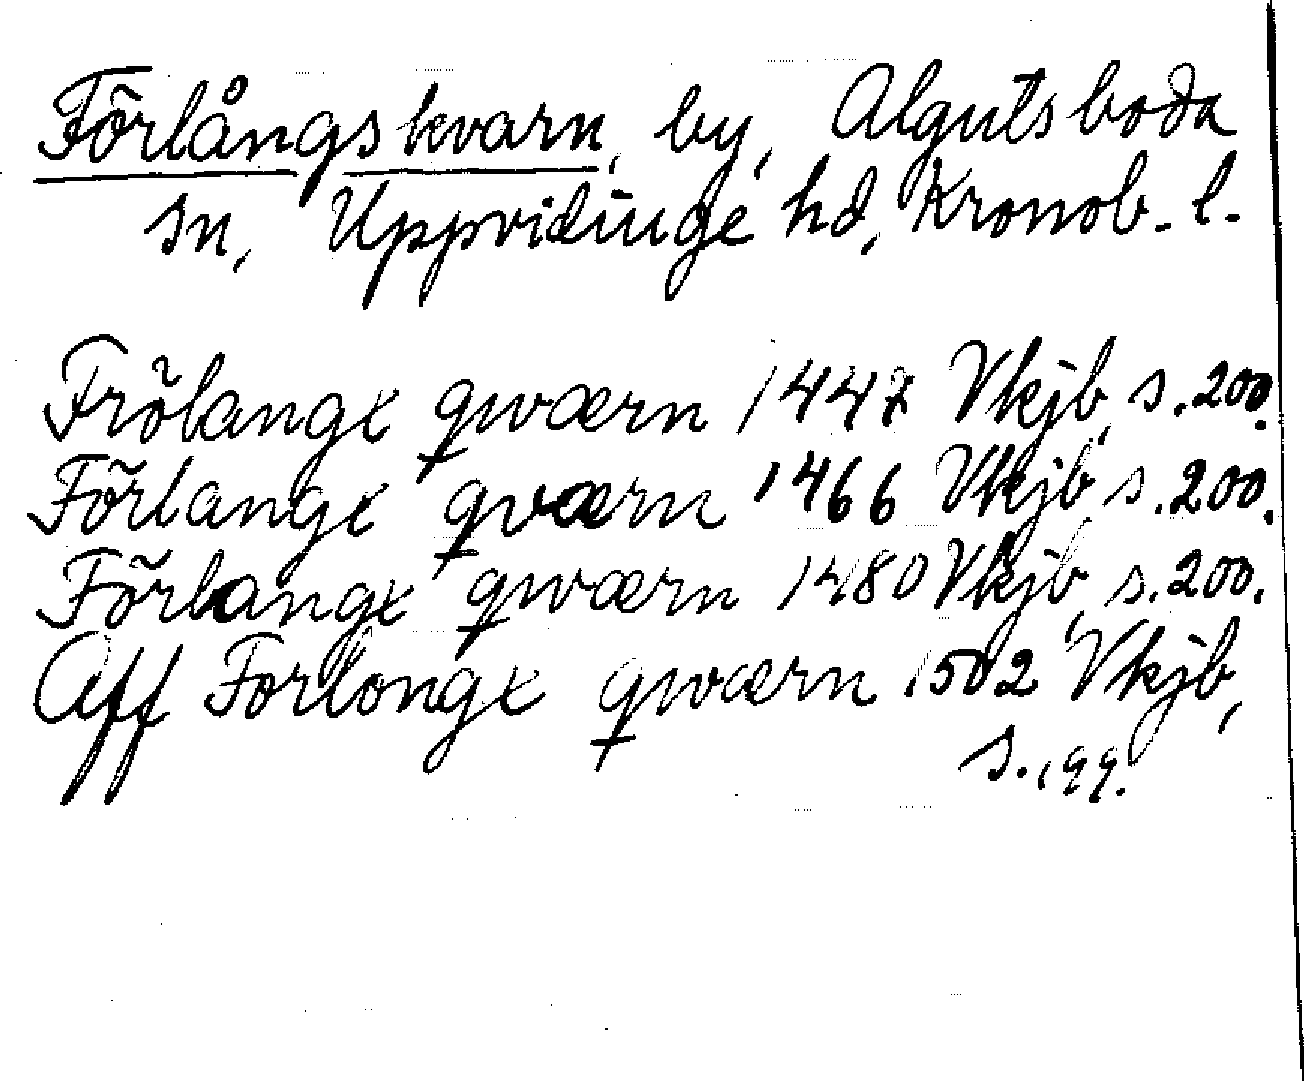 Förlångskvarn, by, Algutsboda
sn, Uppvidinge hd, Kronob. l.
Frölange qwærn 1447 Vkjb, s. 200.
Förlange qværn 1466 Vkjb, s. 200.
Förlange qwærn 1480 Vkjb, s. 200.
Aff Forlonge qwærn 1502 Vkjb,
s. 199.